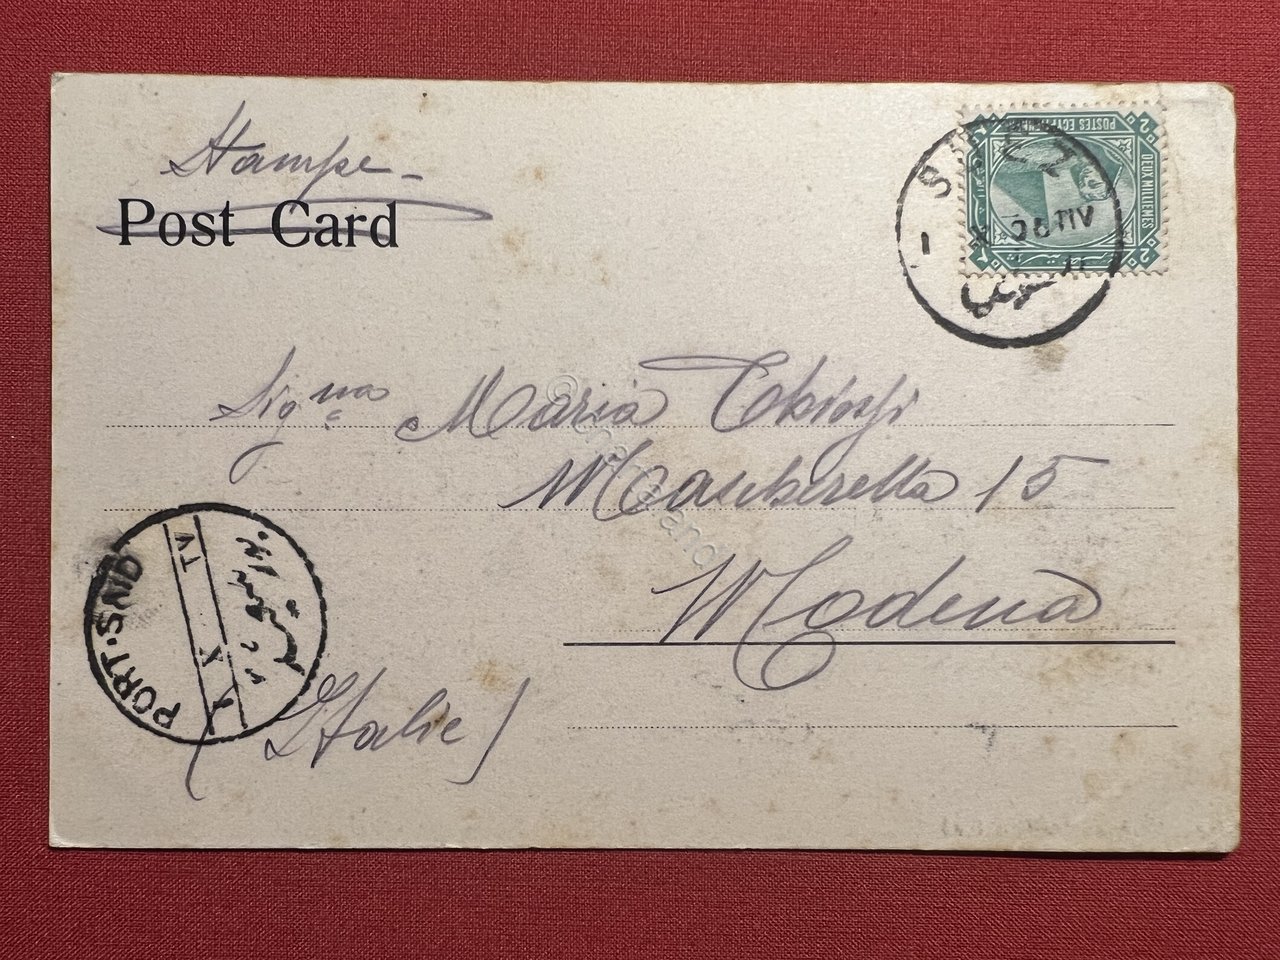 Stampe -
Post Card
POSTES EGYPTIENNES
DEUX MILLIEMES
2
2
SUEZ
السويس
Sig.na Maria
Mascherella 15
Modena
(Italie)
PORT-SAID